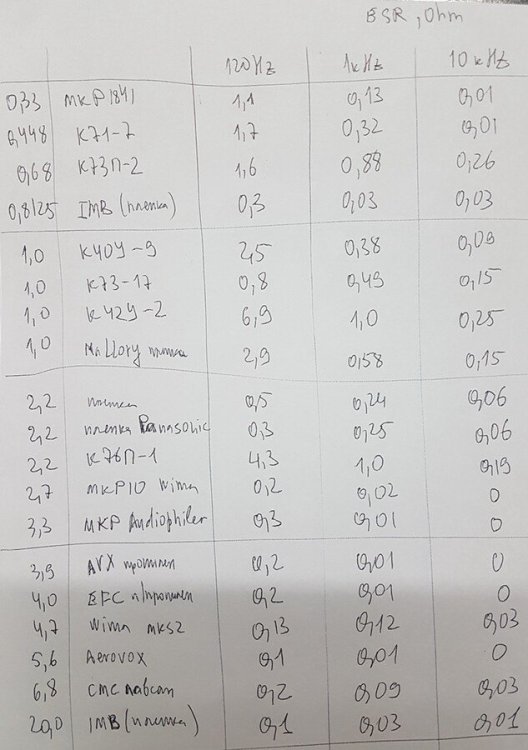 ESR, Ohm
120Hz 1kHz 10kHz
0,33 МКР1841 1,1 0,13 0,01
0,448 К71-7 1,7 0,32 0,01
0,68 К73П-2 1,6 0,88 0,26
0,8125 IMB (пленка) 0,3 0,03 0,03
1,0 К40У-9 2,5 0,38 0,09
1,0 К73-17 0,8 0,49 0,15
1,0 К42У-2 6,9 1,0 0,25
1,0 Mallory пленка 2,9 0,58 0,15
2,2 пленка 0,5 0,24 0,06
2,2 пленка Panasonic 0,3 0,25 0,06
2,2 К76П-1 4,3 1,0 0,19
2,7 МКР10 Wima 0,2 0,02 0
3,3 МКР Audiophiler 0,3 0,01 0
3,9 AVX пропилен 0,2 0,01 0
4,0 EFC п/пропилен 0,2 0,01 0
4,7 Wima mks2 0,13 0,12 0,03
5,6 Aerovox 0,1 0,01 0
6,8 лавсан 0,2 0,09 0,03
20,0 IMB (пленка) 0,1 0,03 0,01